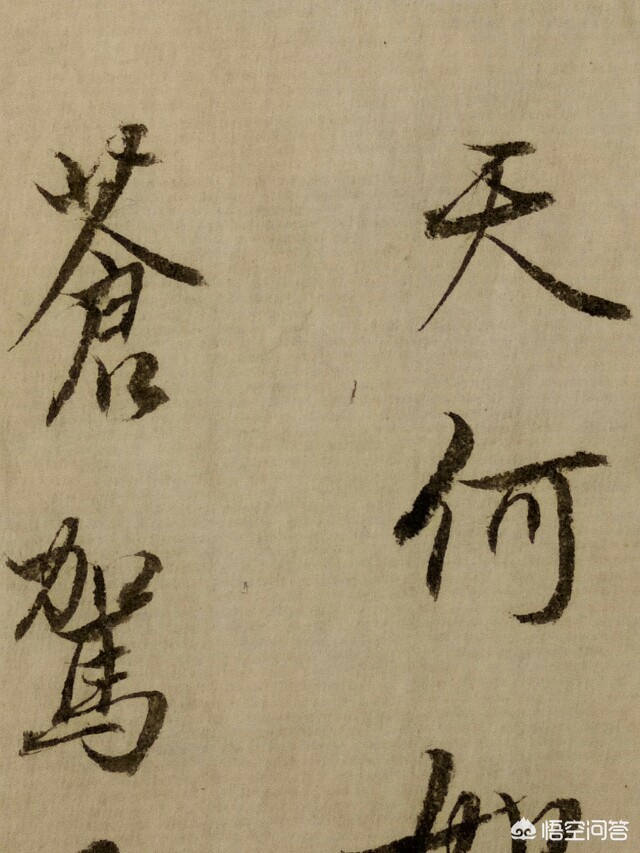 天何
蒼駕
悟空问答